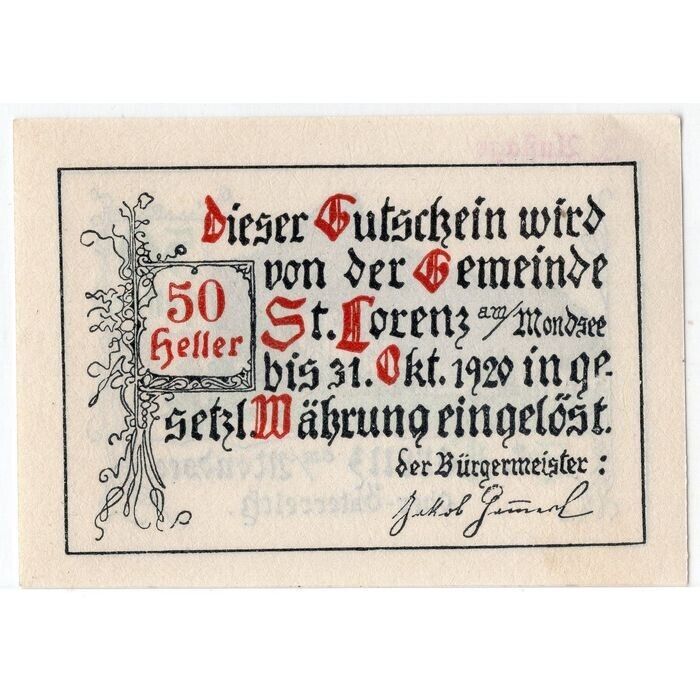 Dieser Gutschein wird
von der Gemeinde
50
Heller
St. Lorenz am/Mondsee
bis 31. Okt. 1920 in ge-
setzl Währung eingelöst.
der Bürgermeister:
Jakob Hammerl